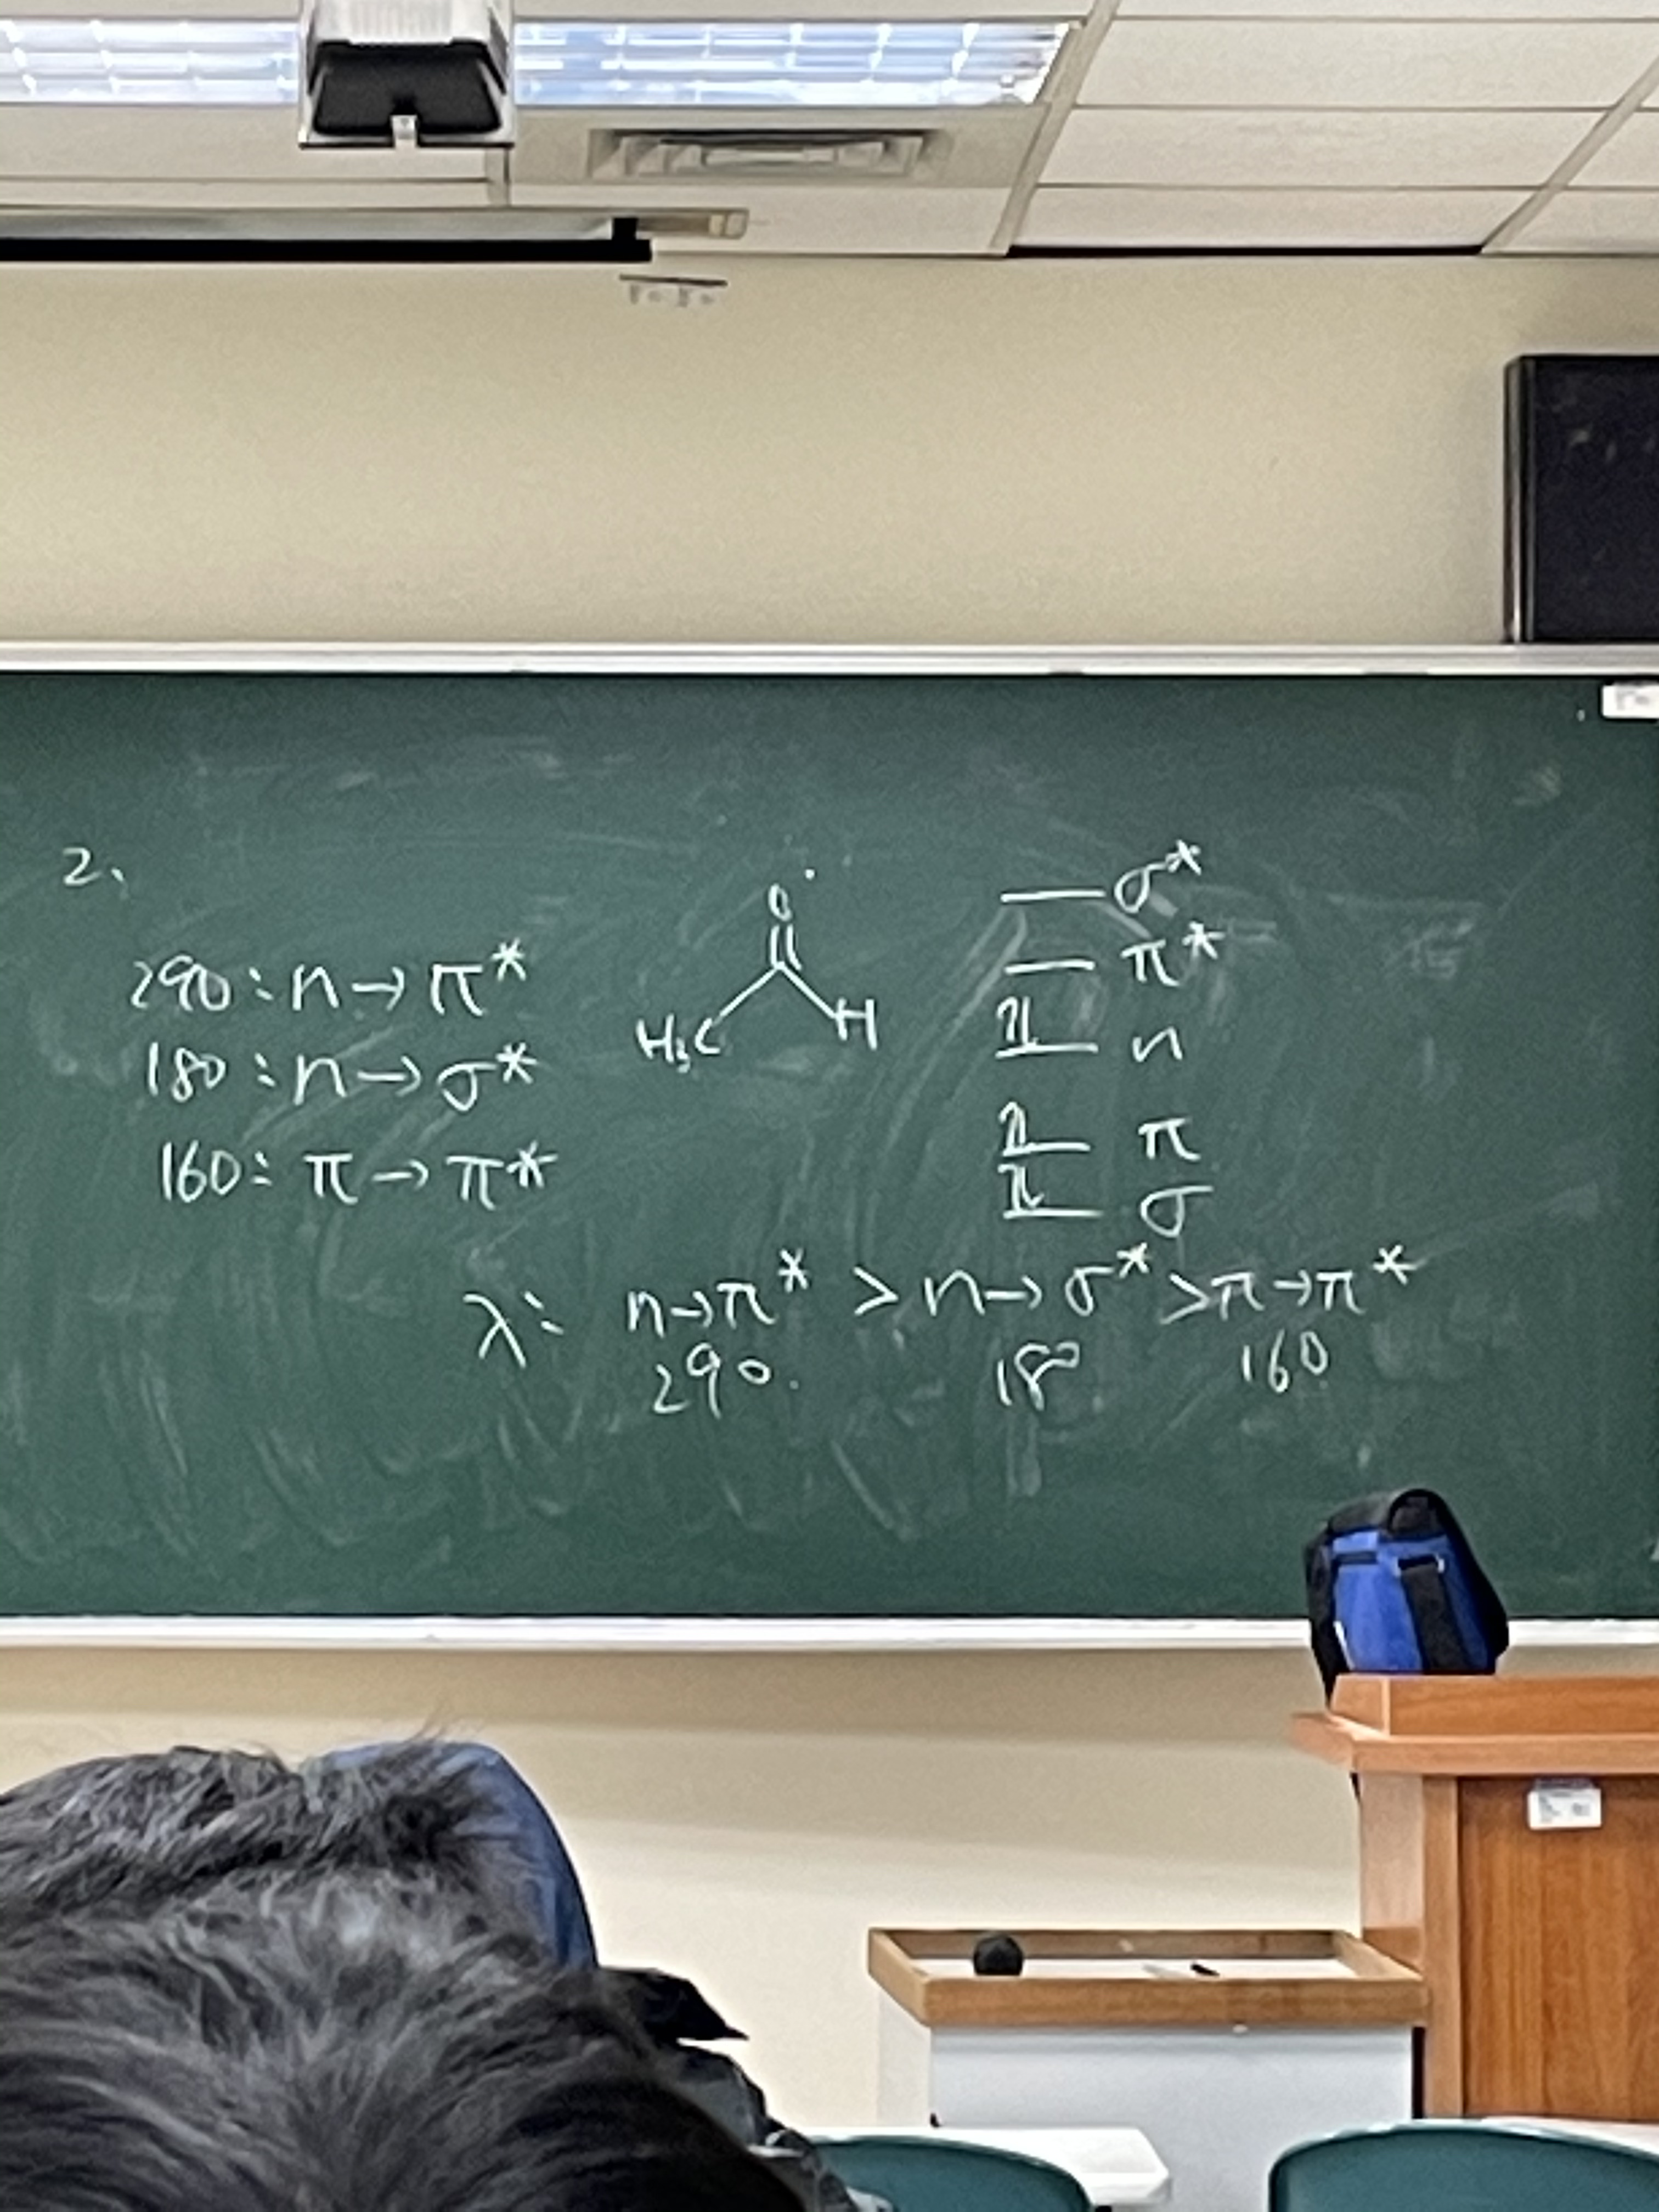 2、
290 : n → π*
180 : n → σ*
160 : π → π*
O
H₃C
H
σ*
π*
n
π
σ
λ : n→π* > n→σ* > π→π*
290. 180 160